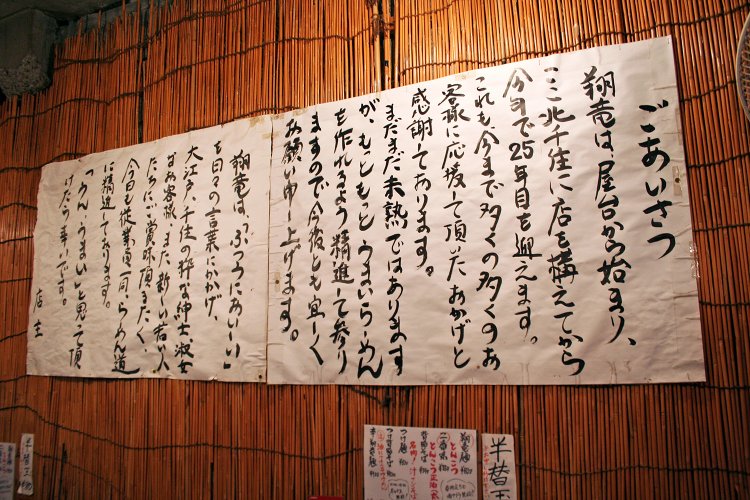 ごあいさつ
翔竜は、屋台から始まり、
ここ北千住に店を構えてから
今年で25年目を迎えます。
これも、今まで多くの多くのお
客様に応援して頂いたおかげと
感謝しております。
まだまだ未熟ではあります
が、もっともっとうまいらーめん
を作れるよう精進して参り
ますので今後とも宜しく
お願い申し上げます。
翔竜は、「ふつうにおいーい」
を日々の言葉にかかげ、
大江戸、千住の粋な紳士淑女
なお客様、また新しい若い人
たちにご賞味頂きたく、
今日も従業員一同、らーめん道
に精進しております。
「うん、うまい」と思って頂
けたら幸いです。
店主
半替玉
翔竜麺
とんこつ
つけ麺
半替玉